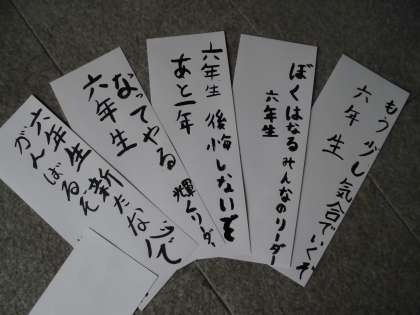 もう少し気合でいくぞ
六年生
ぼくはなるみんなのリーダー
六年生
六年生 後悔しないぞ
あと一年
なってやる 輝くリーダー
六年生
六年生 新たな心で
がんばるぞ